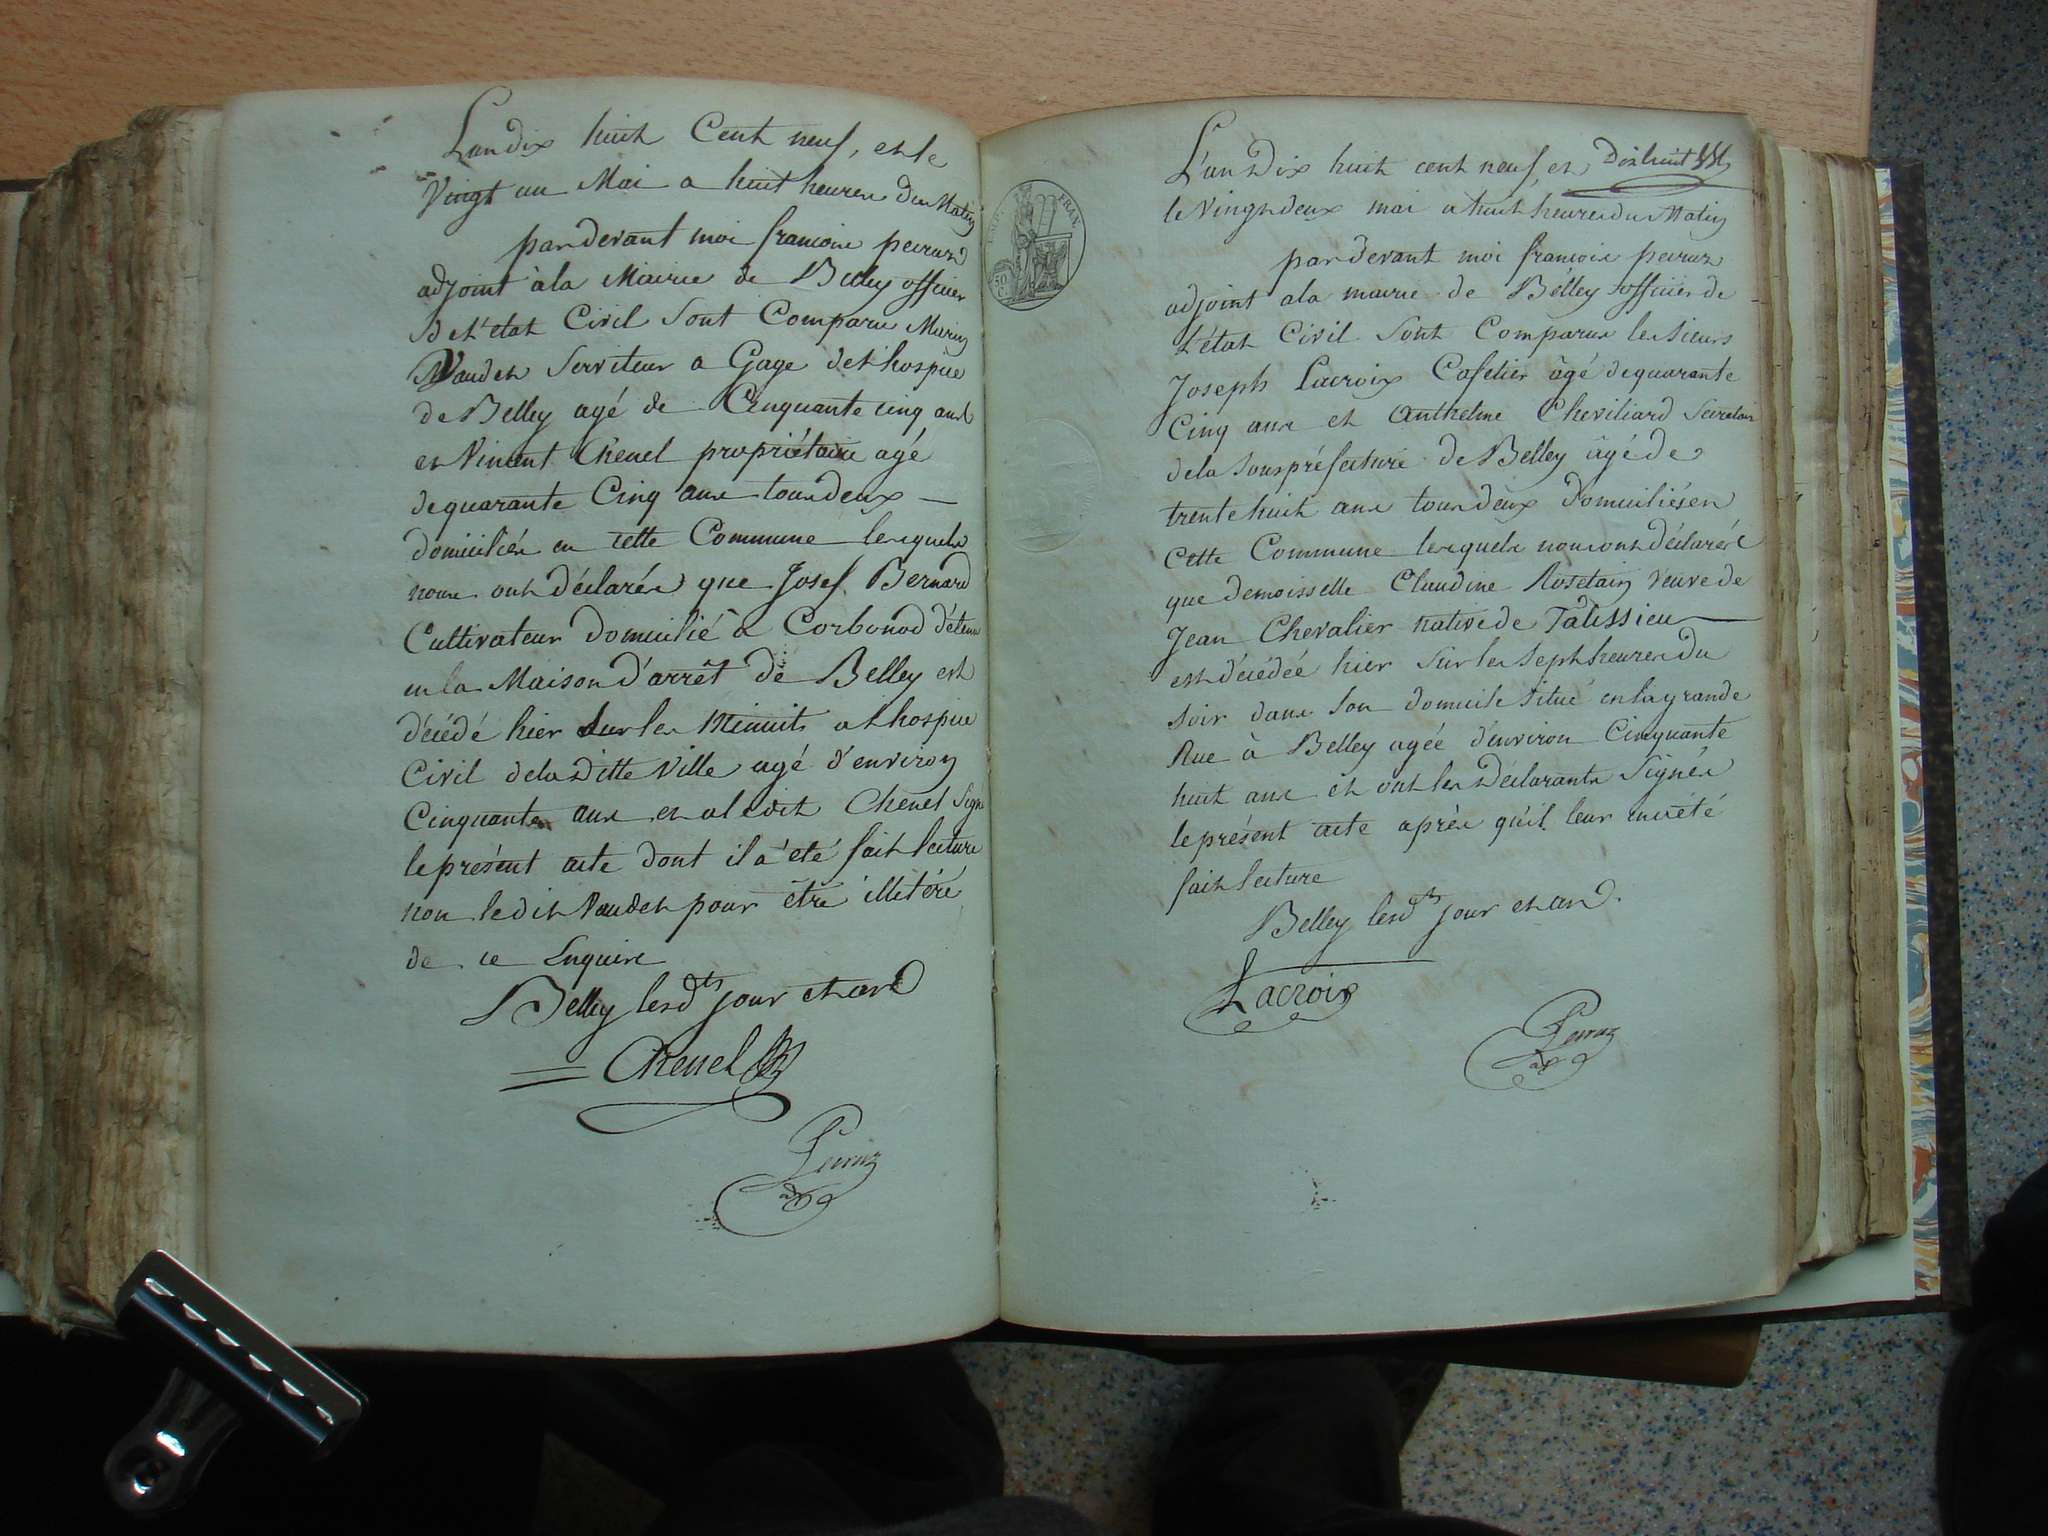 L'an dix huit Cent neuf, et le
Vingt un Mai a huit heures du Matin
par devant moi francois peiruz
adjoint à la Mairie de Belley officier
de l'état Civil Sont Comparu Marin
Vaudet Serviteur a Gage de l'hospice
de Belley agé de Cinquante cinq ans
et Vincent Chenel propriétaire agé
de quarante Cinq ans tous deux
domiciliés en cette Commune lesquels
nous ont déclarés que Josef Bernard
Cultivateur domicilié à Corbonod détenu
en la Maison d'arrêt de Belley est
décédé hier Sur les Minuits a l'hospice
Civil de la ditte Ville agé d'environ
Cinquante ans et a ledit Chenel Signé
le présent acte dont il a été fait lecture
non ledit Vaudet pour être illitéré
de ce Enquire
Belley lesd.ts jour et an
Chenel
Peiruz
adj
L'an Dix huit cent neuf, et Dix huit
le Vingt deux mai a huit heures du Matin
par devant moi francois peiruz
adjoint a la mairie de Belley officier de
L'état Civil Sont Comparus les Sieurs
Joseph Lacroix Cafetier âgé de quarante
Cinq ans et Anthelme Cheviliard Secretaire
de la Souspréfecture de Belley âgé de
trente huit ans tous deux domiciliés en
Cette Commune lesquels nous ont déclarés
que demoisselle Claudine Rosetain Veuve de
Jean Chevalier native de Talissieu
est décédée hier Sur les Sept heures du
Soir dans Son domicile Situé en la grande
Rue à Belley agée d'environ Cinquante
huit ans et ont les Déclarants Signés
le présent acte après qu'il leur en a été
fait lecture
Belley lesd.ts jour et an
Lacroix
Peiruz
adj
FRAN.
50
C.